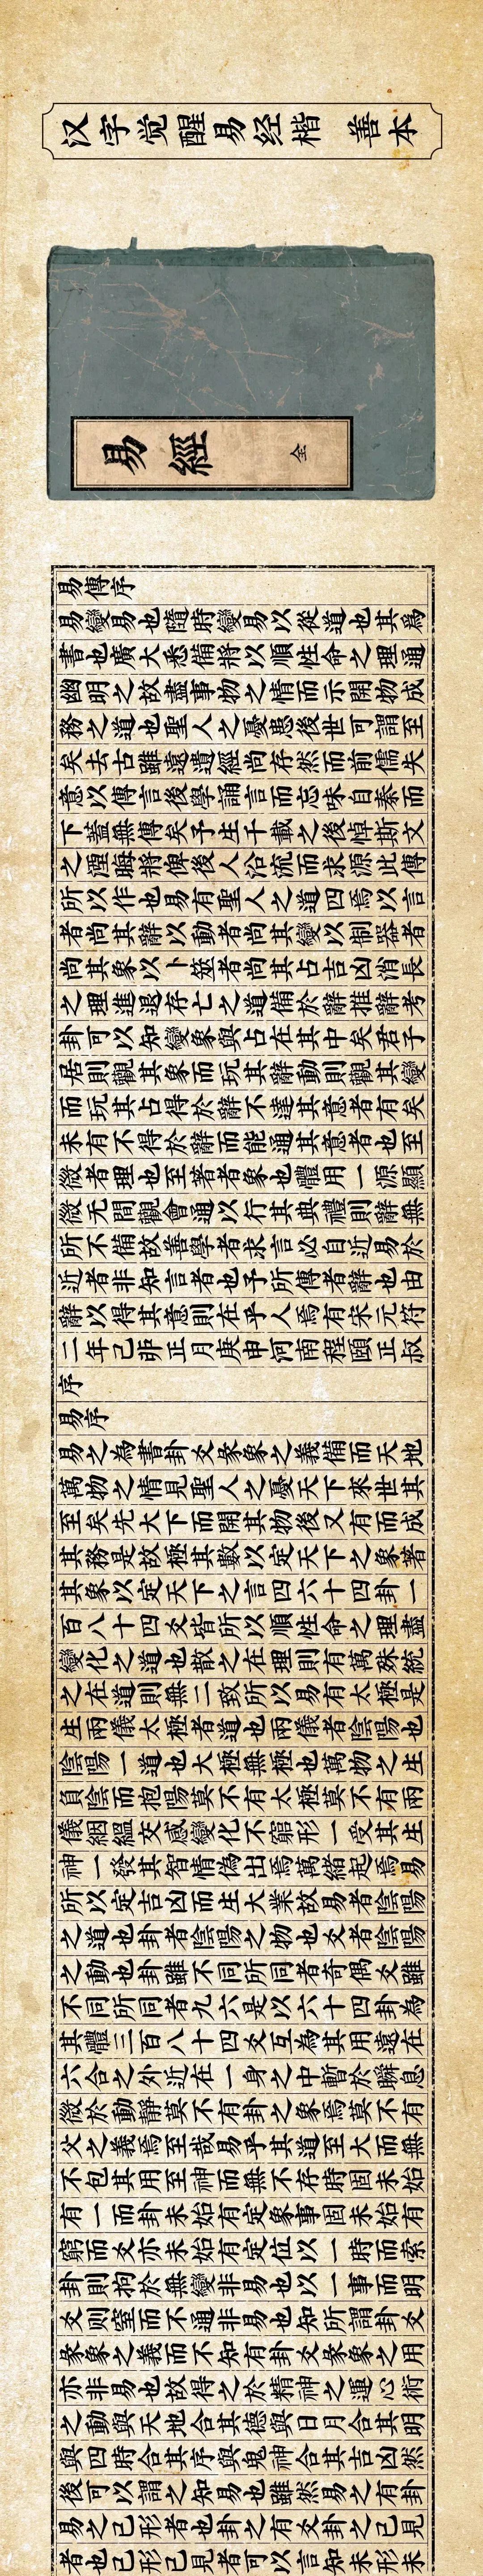 汉字觉醒易经楷 善本
易經 全
易傳序
易變易也隨時變易以從道也其為
書也廣大悉備將以順性命之理通
幽明之故盡事物之情而示開物成
務之道也聖人之憂患後世可謂至
矣去古雖遠遺經尚存然而前儒失
意以傳言後學誦言而忘味自秦而
下蓋無傳矣予生千載之後悼斯文
之湮晦將俾後人沿流而求源此傳
所以作也易有聖人之道四焉以言
者尚其辭以動者尚其變以制器者
尚其象以卜筮者尚其占吉凶消長
之理進退存亡之道備於辭推辭考
卦可以知變象與占在其中矣君子
居則觀其象而玩其辭動則觀其變
而玩其占得於辭不達其意者有矣
未有不得於辭而能通其意者也至
微者理也至著者象也體用一源顯
微无間觀會通以行其典禮則辭無
所不備故善學者求言必自近易於
近者非知言者也予所傳者辭也由
辭以得其意則在乎人焉有宋元符
二年己非正月庚申河南程頤正叔
序
易序
易之為書卦爻彖象之義備而天地
萬物之情見聖人之憂天下來世其
至矣先天下而開其物後又有而成
其務是故極其數以定天下之象著
其象以定天下之言四六十四卦一
百八十四爻皆所以順性命之理盡
變化之道也散之在理則有萬殊統
之在道則無二致所以易有太極是
生兩儀太極者道也兩儀者陰陽也
陰陽一道也大極無極也萬物之生
負陰而抱陽莫不有太極莫不有兩
儀絪縕交感變化不窮形一受其生
神一發其智情偽出焉萬緒起焉易
所以定吉凶而生大業故易者陰陽
之道也卦者陰陽之物也爻者陰陽
之動也卦雖不同所同者奇偶爻雖
不同所同者九六是以六十四卦為
其體三百八十四爻互為其用遠在
六合之外近在一身之中暫於瞬息
微於動靜莫不有卦之象焉莫不有
爻之義焉至哉易乎其道至大而無
不包其用至神而無不存時固未始
有一而卦未始有定象事固未始有
窮而爻亦未始有定位以一時而索
卦則拘於無變非易也以一事而明
爻则窒而不通非易也知所謂卦爻
彖象之義而不知有卦爻彖象之用
亦非易也故得之於精神之運心術
之動與天地合其德與日月合其明
與四時合其序與鬼神合其吉凶然
後可以謂之知易也雖然易之有卦
易之已形者也卦之有爻卦之已見
者也已形已見者可以言知未形未